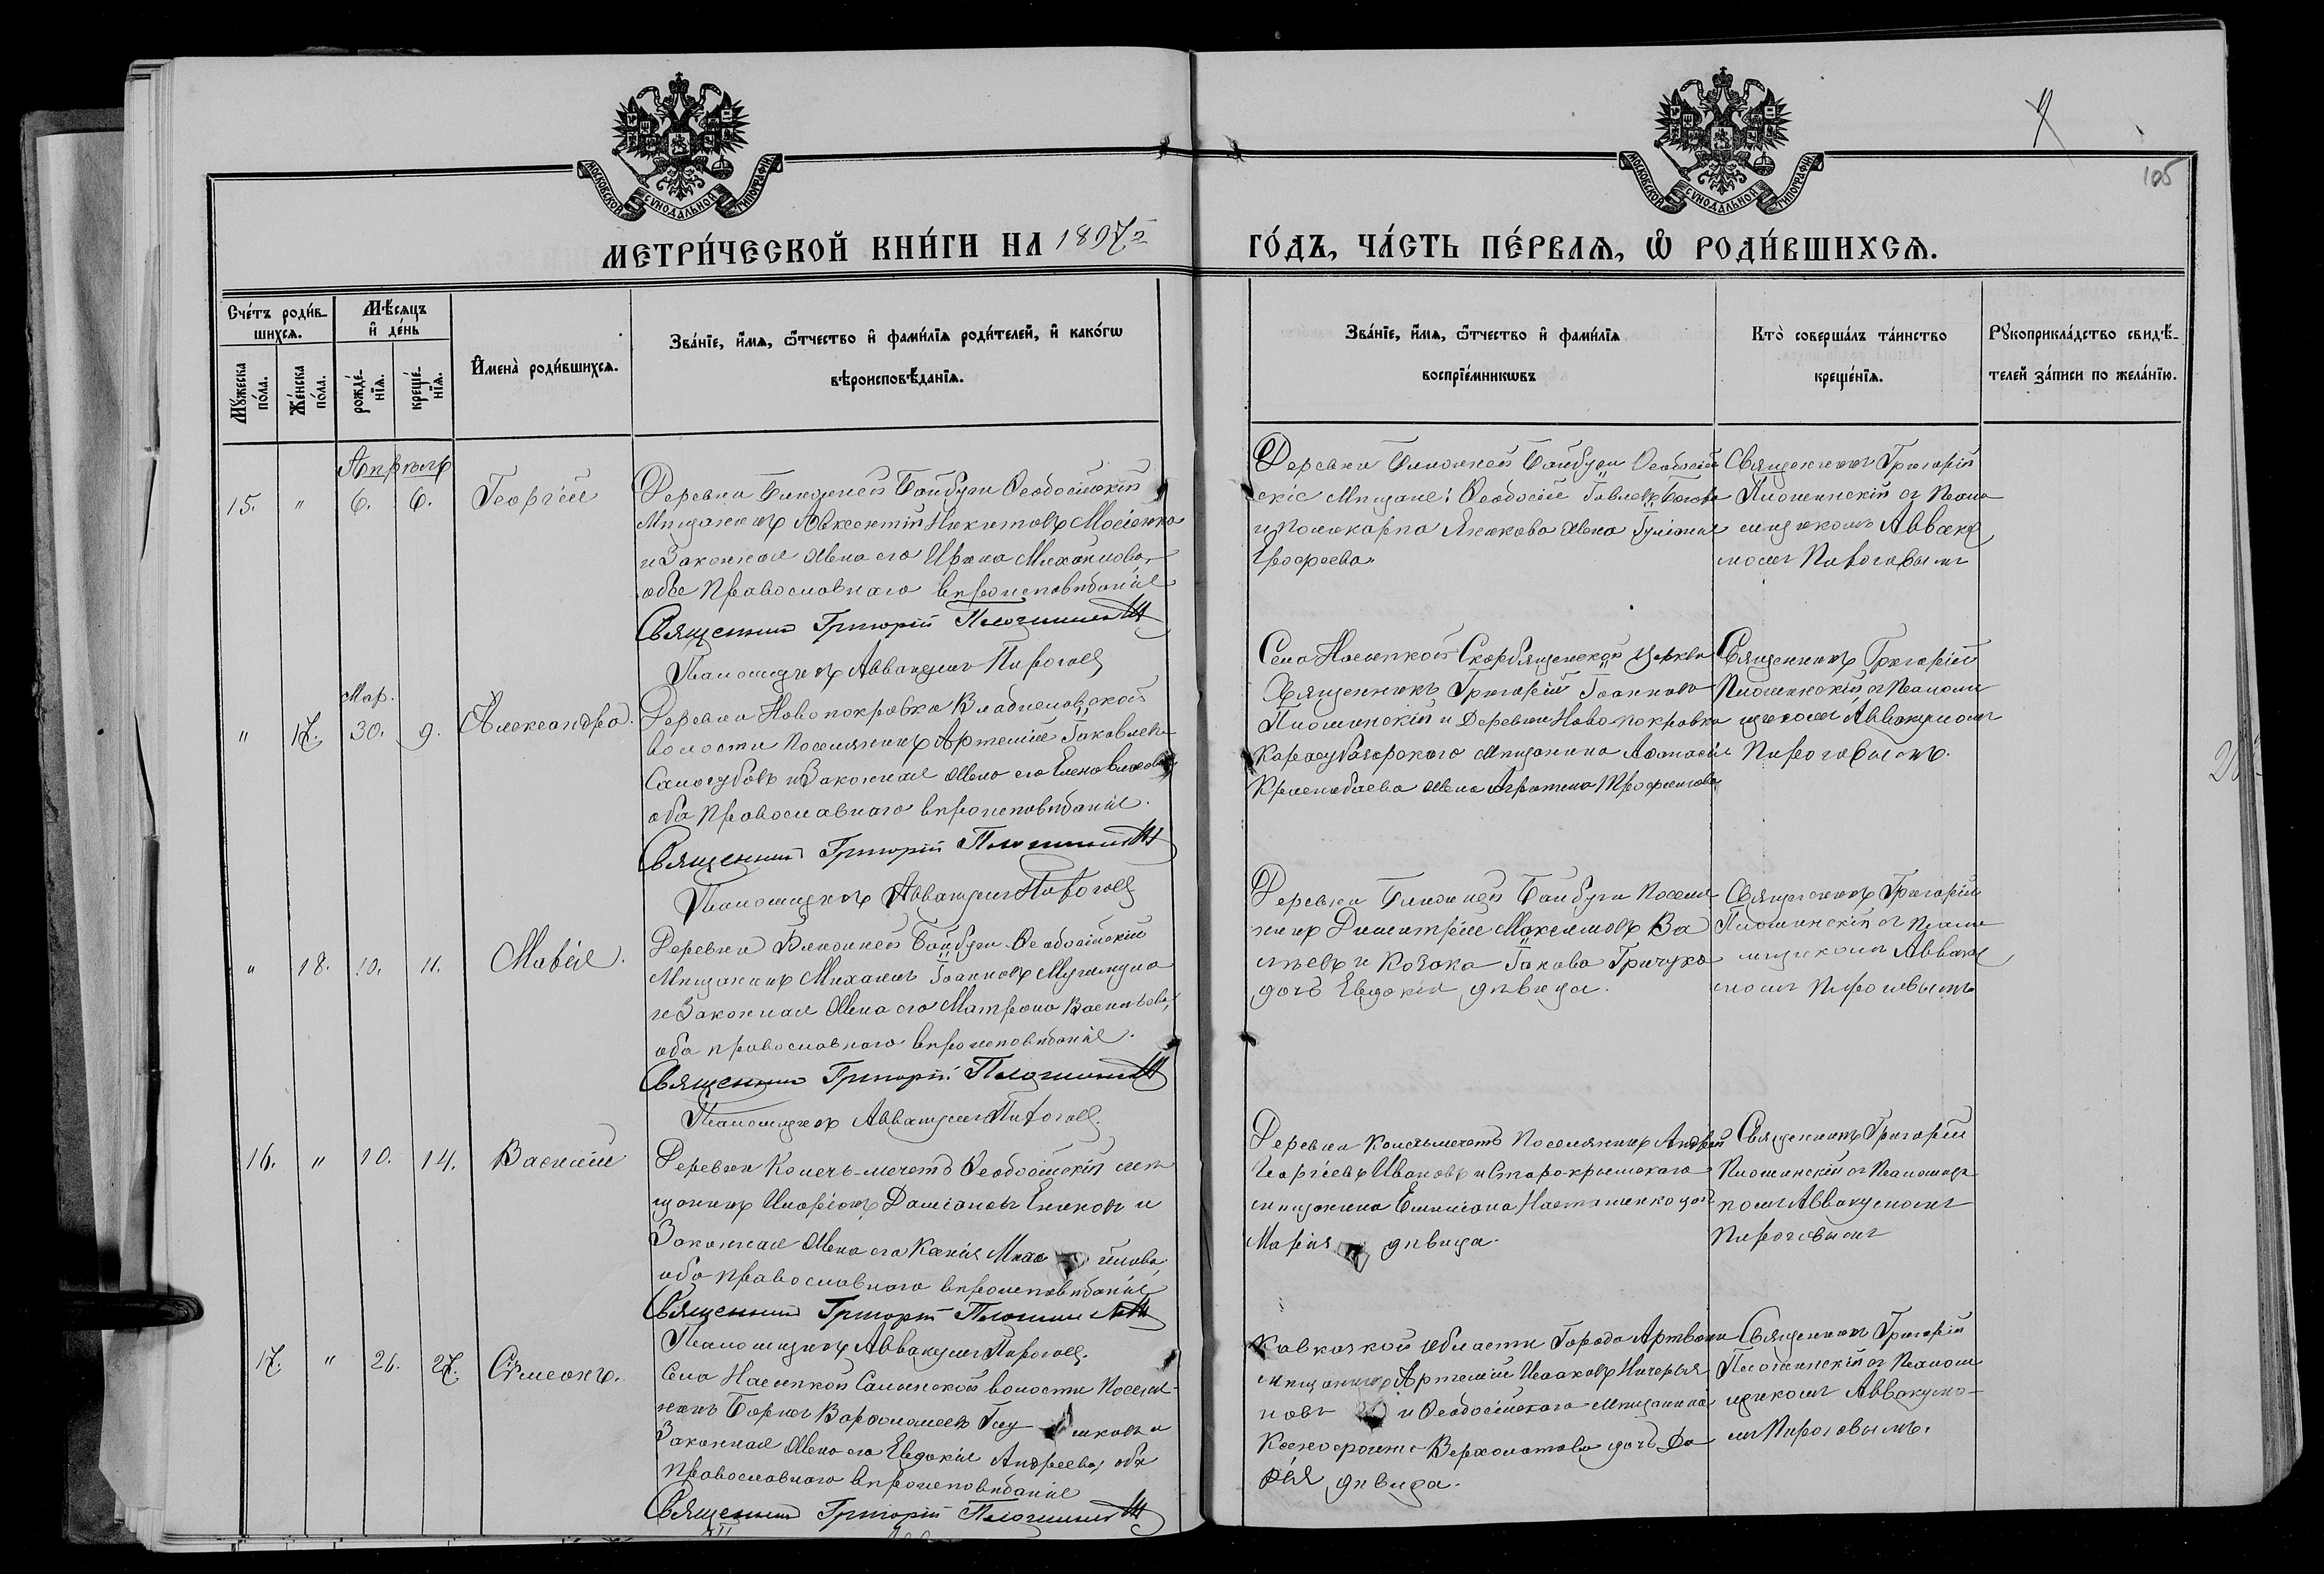 МОСКОВСКОЙ СѴНОДАЛЬНОЙ ТИПОГРАФІИ
МОСКОВСКОЙ СѴНОДАЛЬНОЙ ТИПОГРАФІИ
105
МЕТРИ́ЧЕСКОЙ КНИ́ГИ НА 1897 ГО́ДЪ, ЧА́СТЬ ПЕ́РВАѦ, Ѡ҆ РОДИ́ВШИХСѦ.
Сче́тъ роди́в-
шихсѧ.
Мꙋ́жеска по́ла.
Же́нска по́ла.
Мѣ́сѧцъ
и҆ де́нь
рожде́-
нїѧ.
креще́-
нїѧ.
И҆мена̀ роди́вшихсѧ.
Зва́нїе, и҆́мѧ, ѻ҆́тчество и҆ фами́лїѧ роди́телей, и҆ како́гѡ
вѣроисповѣ́данїѧ.
Зва́нїе, и҆́мѧ, ѻ҆́тчество и҆ фами́лїѧ
воспрїе́мникѡвъ
Кто̀ соверша́лъ та́инство
креще́нїѧ.
Рꙋкоприкла́дство свидѣ́-
телей за́писи по жела́нїю.
Апрѣль
15. " 6. 6. Георгій
Деревни Ближней Байбуги Ѳеодосійскій
Мѣщанинъ Авксентій Никитовъ Мосіенко
и Законная Жена его Ирина Михайлова,
обое Православнаго вѣроисповѣданія
Священникъ Григорій
Псаломщикъ Аввакумъ Пироговъ
Деревни Ближней Байбуги Ѳеодосій
скіе Мѣщане: Ѳеодосій
и Поликарпа Жена
Священникъ Григорій
и Псало
мщикомъ Авваку
момъ Пироговымъ
Мар.
" 17. 30. 9. Александра.
Деревни Новопокровка Владиславской
волости поселянинъ Артемій Іаковлевъ
Самогубовъ и Законная Жена его Елена
оба Православнаго вѣроисповѣданія.
Священникъ Григорій
Псаломщикъ Аввакумъ Пироговъ
Села Насыпкой Скорбященской церкви
Священникъ Григорій Іоанновъ
и Деревни Ново-покровка
Карасубазарского мѣщанина Аѳанасія
жена Трофимова
Священникъ Григорій
и Псалом
щикомъ Аввакумомъ
Пироговымъ.
" 18. 10. 11. Мавра.
Деревни Ближней Байбуги Ѳеодосійскій
Мѣщанинъ Михаилъ Іоанновъ
и Законная Жена его Матрона Васильева,
оба православного вѣроисповѣданія.
Священникъ Григорій
Псаломщикъ Аввакумъ Пироговъ.
Деревни Ближней Байбуги Поселя
нинъ Димитрій Максимовъ Ва
сильевъ и Козака Іакова Гричука
дочь Евдокія дѣвица.
Священникъ Григорій
и Псало
мщикомъ Авваку
момъ Пироговымъ
16. " 10. 14. Василій
Деревни Конечь-мечеть Ѳеодосійскій мѣ
щанинъ Иларіонъ Даміановъ и
Законная Жена его Ксенія
оба православного вѣроисповѣданія
Священникъ Григорій
Псаломщикъ Аввакумъ Пироговъ.
Деревни Конечьмечеть Поселянинъ Андрей
Георгіевъ Ивановъ и Старо-крымскаго
мѣщанина Емиліана дочь
Марія дѣвица.
Священникъ Григорій
и Псаломщи
комъ Аввакумомъ
Пироговымъ
17. " 26. 27. Сѵмеонъ.
Села Насыпкой Салынской волости Поселя-
нинъ Борисъ Варѳоломеевъ
Законная Жена его Евдокія Андреева, оба
Православного вѣроисповѣданія
Священникъ Григорій
Кавказкой области Города Артвина
мѣщанинъ Артемій Исааковъ
новъ и Ѳеодосійского мѣщанина
дочь Да
рія дѣвица.
Священникъ Григорій
и Псалом
щикомъ Аввакумо-
мъ Пироговымъ.